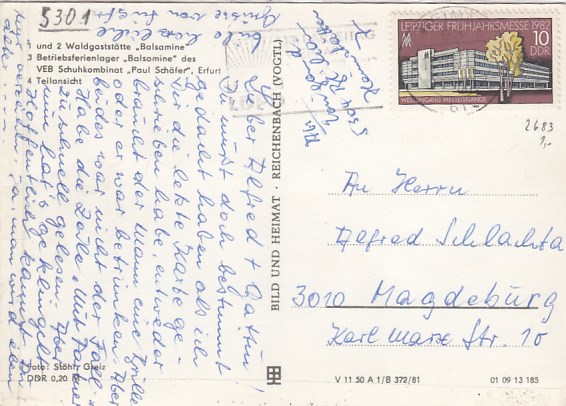 5301
1 und 2 Waldgaststätte „Balsamine"
3 Betriebsferienlager „Balsamine" des
VEB Schuhkombinat „Paul Schäfer", Erfurt
4 Teilansicht
Foto: Stöhr, Greiz
DDR 0,20
BILD UND HEIMAT · REICHENBACH (VOGTL)
V 11 50 A 1/B 372/81
01 09 13 185
LEIPZIGER FRÜHJAHRSMESSE 1982
10
DDR
WESTEINGANG MESSEGELÄNDE
2683
1,-
An Herrn
Alfred Schlachta
3010 Magdeburg
Karl Marx Str. 10
Lieber Alfred + Gattin!
Du wirst doch bestimmt
gedacht haben als ich
Dir die letzte Karte ge-
schrieben habe, entweder
braucht der Mann eine Brille
oder er war betrunken. Aber
beides war nicht der Fall.
Habe die Zeile
zu schnell gelesen. Aber
nun hat's ge klingelt.
Hoffentlich kannst Du
man wird eben
alle
Grüße von